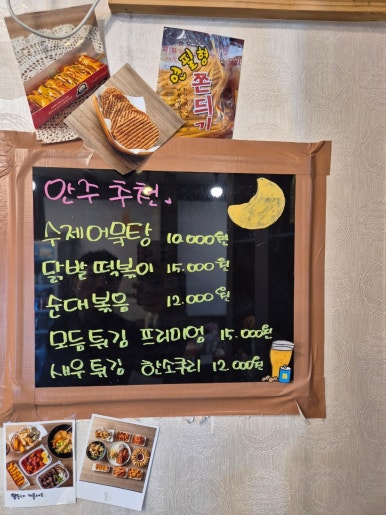 연필형
쫀듸기
안주 추천
수제어묵탕 10.000원
닭발 떡볶이 15.000원
순대볶음 12.000원
모듬튀김 프리미엄 15.000원
새우튀김 한소쿠리 12.000원